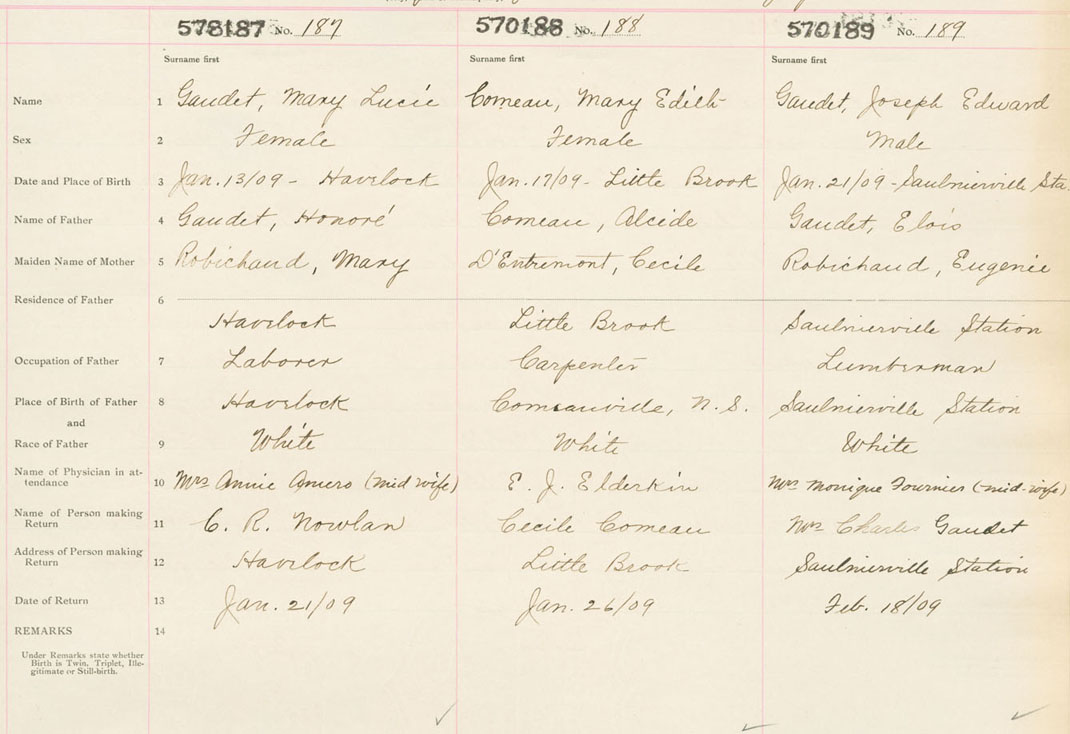 578187 No. 187 570188 No. 188 570189 No. 189
Surname first Surname first Surname first
Name 1 Gaudet, Mary Lucie Comeau, Mary Edith Gaudet, Joseph Edward
Sex 2 Female Female Male
Date and Place of Birth 3 Jan. 13/09 - Havelock Jan. 17/09 - Little Brook Jan. 21/09 - Saulnierville Sta.
Name of Father 4 Gaudet, Honoré Comeau, Alcide Gaudet, Elois
Maiden Name of Mother 5 Robichaud, Mary D'Entremont, Cecile Robichaud, Eugenie
Residence of Father 6
Havelock Little Brook Saulnierville Station
Occupation of Father 7 Laborer Carpenter Lumberman
Place of Birth of Father 8 Havelock Comeauville, N.S. Saulnierville Station
and
Race of Father 9 White White White
Name of Physician in at-
tendance 10 Mrs Annie Amero (mid wife) E. J. Elderkin Mrs Monique Fournier (mid-wife)
Name of Person making
Return 11 C. R. Nowlan Cecile Comeau Mrs Charles Gaudet
Address of Person making
Return 12 Havelock Little Brook Saulnierville Station
Date of Return 13 Jan. 21/09 Jan. 26/09 Feb. 18/09
REMARKS 14
Under Remarks state whether
Birth is Twin, Triplet, Ille-
gitimate or Still-birth.